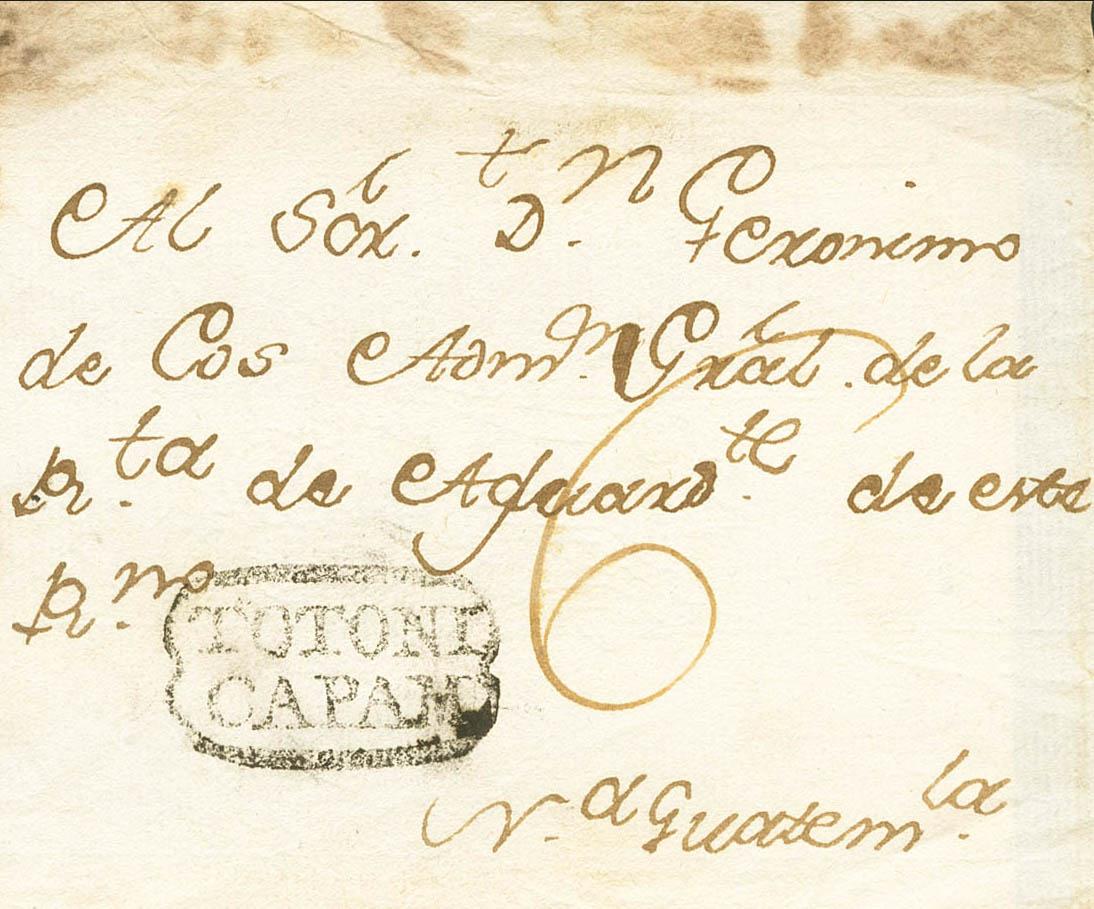 Al Sor. Dn. Geronimo
de Cos Admr. Gral. de la
Rta. de Aguardte. de este
Rno.
6
TOTONI
CAPAM
Na. Guatemla.